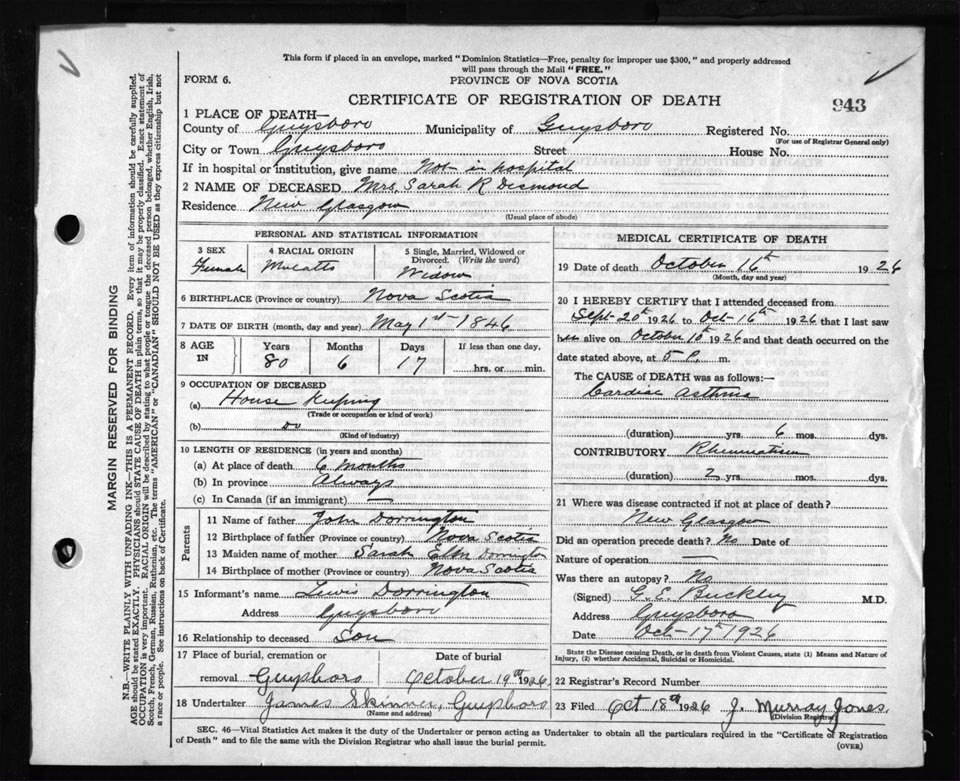 This form if placed in an envelope, marked "Dominion Statistics—Free, penalty for improper use $300," and properly addressed
will pass through the Mail "FREE."
FORM 6.
PROVINCE OF NOVA SCOTIA
CERTIFICATE OF REGISTRATION OF DEATH
943
1 PLACE OF DEATH—
County of Guysboro Municipality of Guysboro Registered No.
(For use of Registrar General only)
City or Town Guysboro Street House No.
If in hospital or institution, give name Not in hospital
2 NAME OF DECEASED Mrs. Sarah R Desmond
Residence New Glasgow
(Usual place of abode)
PERSONAL AND STATISTICAL INFORMATION
3 SEX
Female
4 RACIAL ORIGIN
Mulatto
5 Single, Married, Widowed or
Divorced. (Write the word)
Widow
6 BIRTHPLACE (Province or country) Nova Scotia
7 DATE OF BIRTH (month, day and year) May 1st - 1846
8 AGE IN
Years Months Days If less than one day,
80 6 17 hrs. or min.
9 OCCUPATION OF DECEASED
(a) House Keeping
(Trade or occupation or kind of work)
(b) do
(Kind of industry)
10 LENGTH OF RESIDENCE (in years and months)
(a) At place of death 6 Months
(b) In province Always
(c) In Canada (if an immigrant) —
Parents
11 Name of father John Dorrington
12 Birthplace of father (Province or country) Nova Scotia
13 Maiden name of mother Sarah Ellen Dorrington
14 Birthplace of mother (Province or country) Nova Scotia
15 Informant's name Lewis Dorrington
Address Guysboro
16 Relationship to deceased Son
17 Place of burial, cremation or Date of burial
removal Guysboro October 19th 1926
18 Undertaker James Skinner, Guysboro
(Name and address)
MEDICAL CERTIFICATE OF DEATH
19 Date of death October 16th 1926
(Month, day and year)
20 I HEREBY CERTIFY that I attended deceased from
Sept-20th 1926 to Oct-16th 1926 that I last saw
her alive on October 10th 1926 and that death occurred on the
date stated above, at 5 P. m.
The CAUSE of DEATH was as follows:—
Cardiac Asthma
(duration) yrs. 6 mos. dys.
CONTRIBUTORY Rheumatism
(duration) 2 yrs. mos. dys.
21 Where was disease contracted if not at place of death?
New Glasgow
Did an operation precede death? No Date of
Nature of operation —
Was there an autopsy? No
(Signed) G. E. Buckley M.D.
Address Guysboro
Date Oct-17th 1926
State the Disease causing Death, or in death from Violent Causes, state (1) Means and Nature of
Injury, (2) whether Accidental, Suicidal or Homicidal.
22 Registrar's Record Number
23 Filed Oct 18th 1926 J. Murray Jones.
(Division Registrar)
SEC. 46—Vital Statistics Act makes it the duty of the Undertaker or person acting as Undertaker to obtain all the particulars required in the "Certificate of Registration
of Death" and to file the same with the Division Registrar who shall issue the burial permit.
(OVER)
MARGIN RESERVED FOR BINDING
N.B.—WRITE PLAINLY WITH UNFADING INK—THIS IS A PERMANENT RECORD. Every item of information should be carefully supplied.
AGE should be stated EXACTLY. PHYSICIANS should STATE CAUSE OF DEATH in plain terms, so that it may be properly classified. Exact statement of
OCCUPATION is very important. RACIAL ORIGIN will be described by stating to what people or tongue the deceased person belonged, whether English, Irish,
Scotch, French, German, Russian, Ruthenian, etc. The terms "AMERICAN" or "CANADIAN" SHOULD NOT BE USED as they express citizenship but not
a race or people. See instructions on back of Certificate.